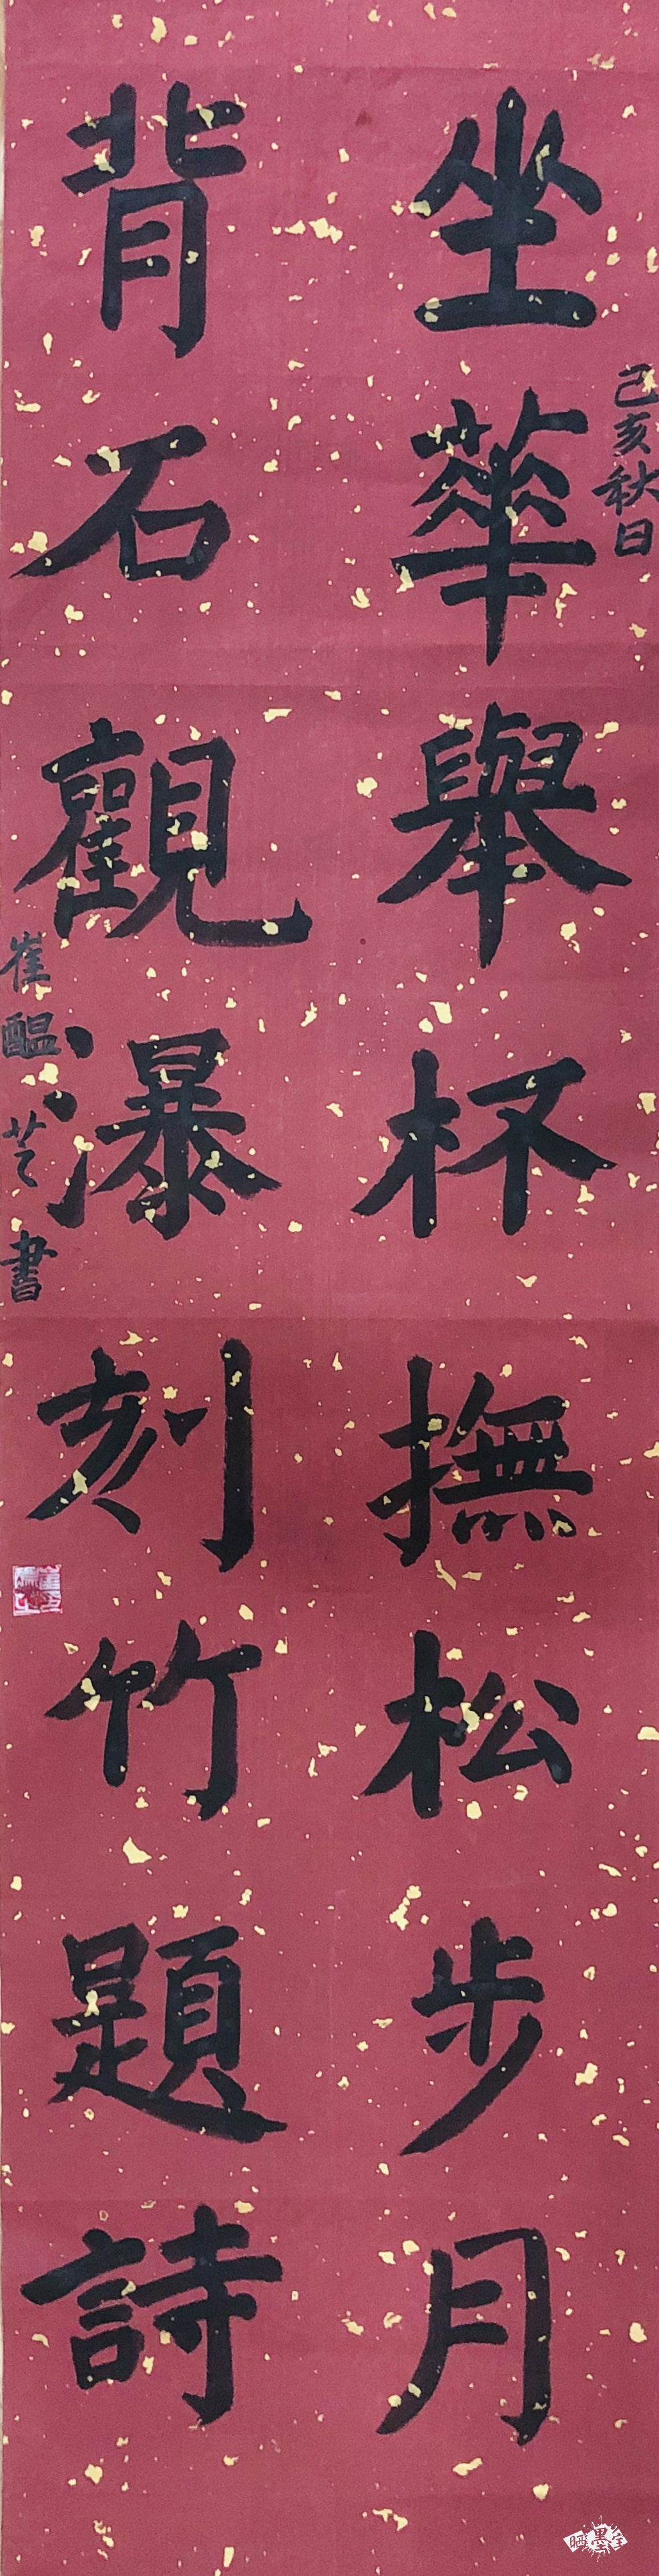 坐華舉杯撫松步月
己亥秋日
背石觀瀑刻竹題詩
崔醖芝書
晒墨宝